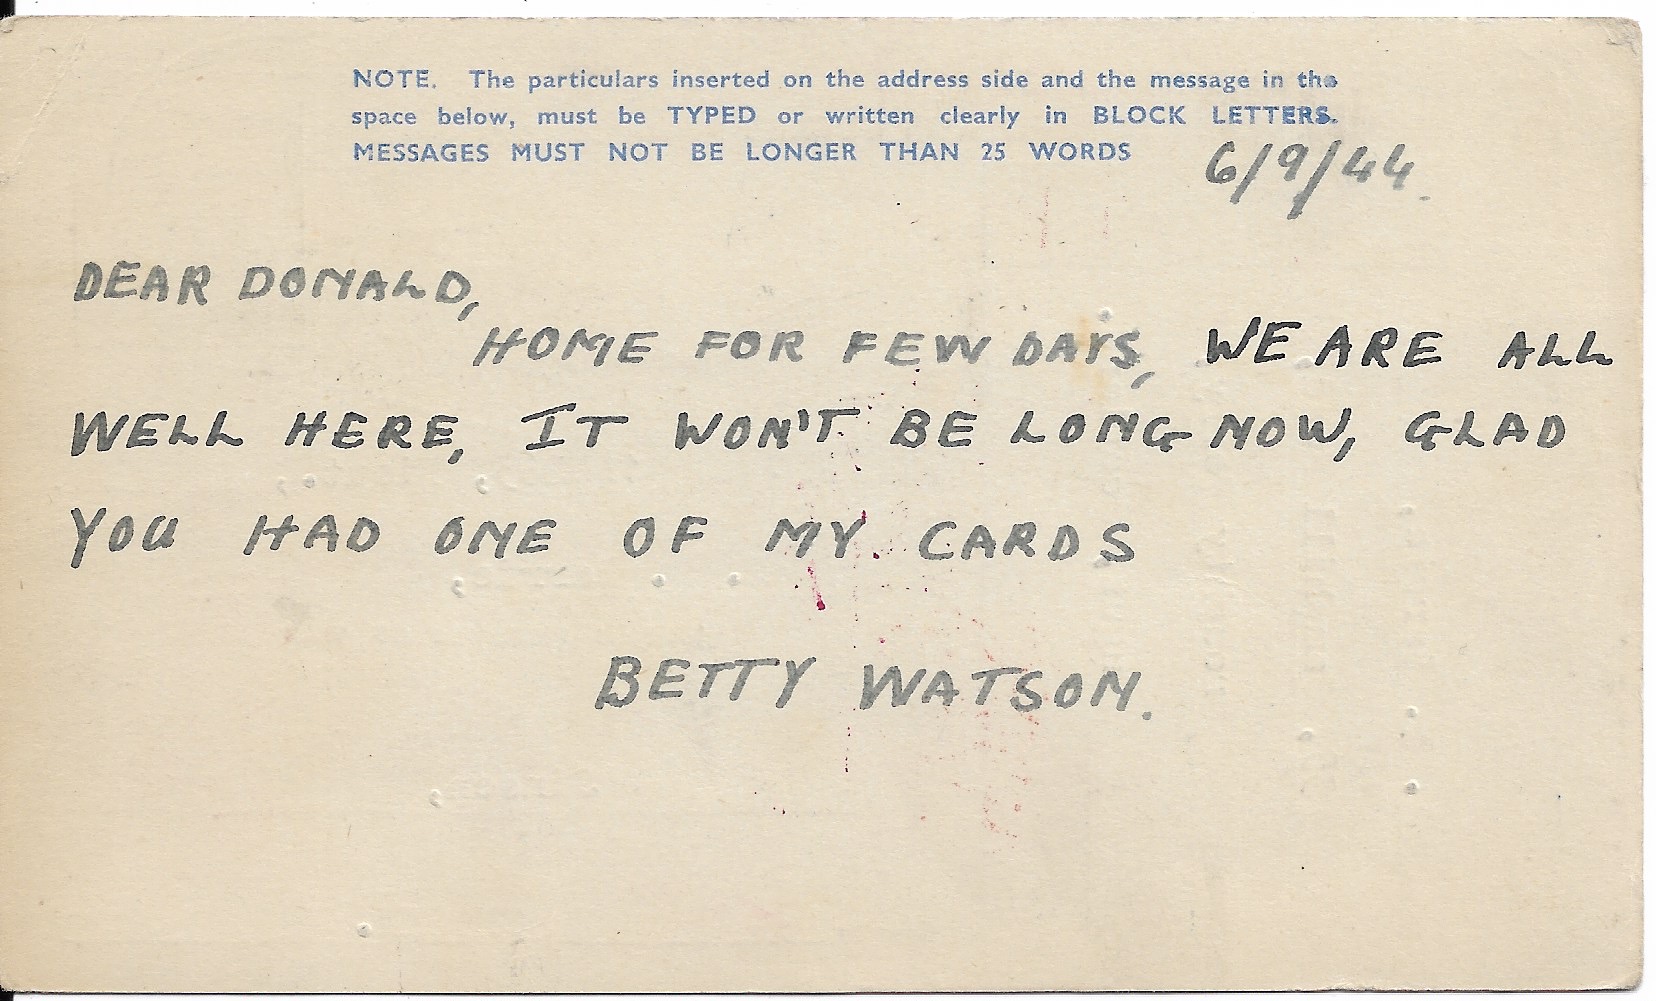 NOTE. The particulars inserted on the address side and the message in the
space below, must be TYPED or written clearly in BLOCK LETTERS.
MESSAGES MUST NOT BE LONGER THAN 25 WORDS
6/9/44.
DEAR DONALD,
HOME FOR FEW DAYS, WE ARE ALL
WELL HERE, IT WON'T BE LONG NOW, GLAD
YOU HAD ONE OF MY CARDS
BETTY WATSON.